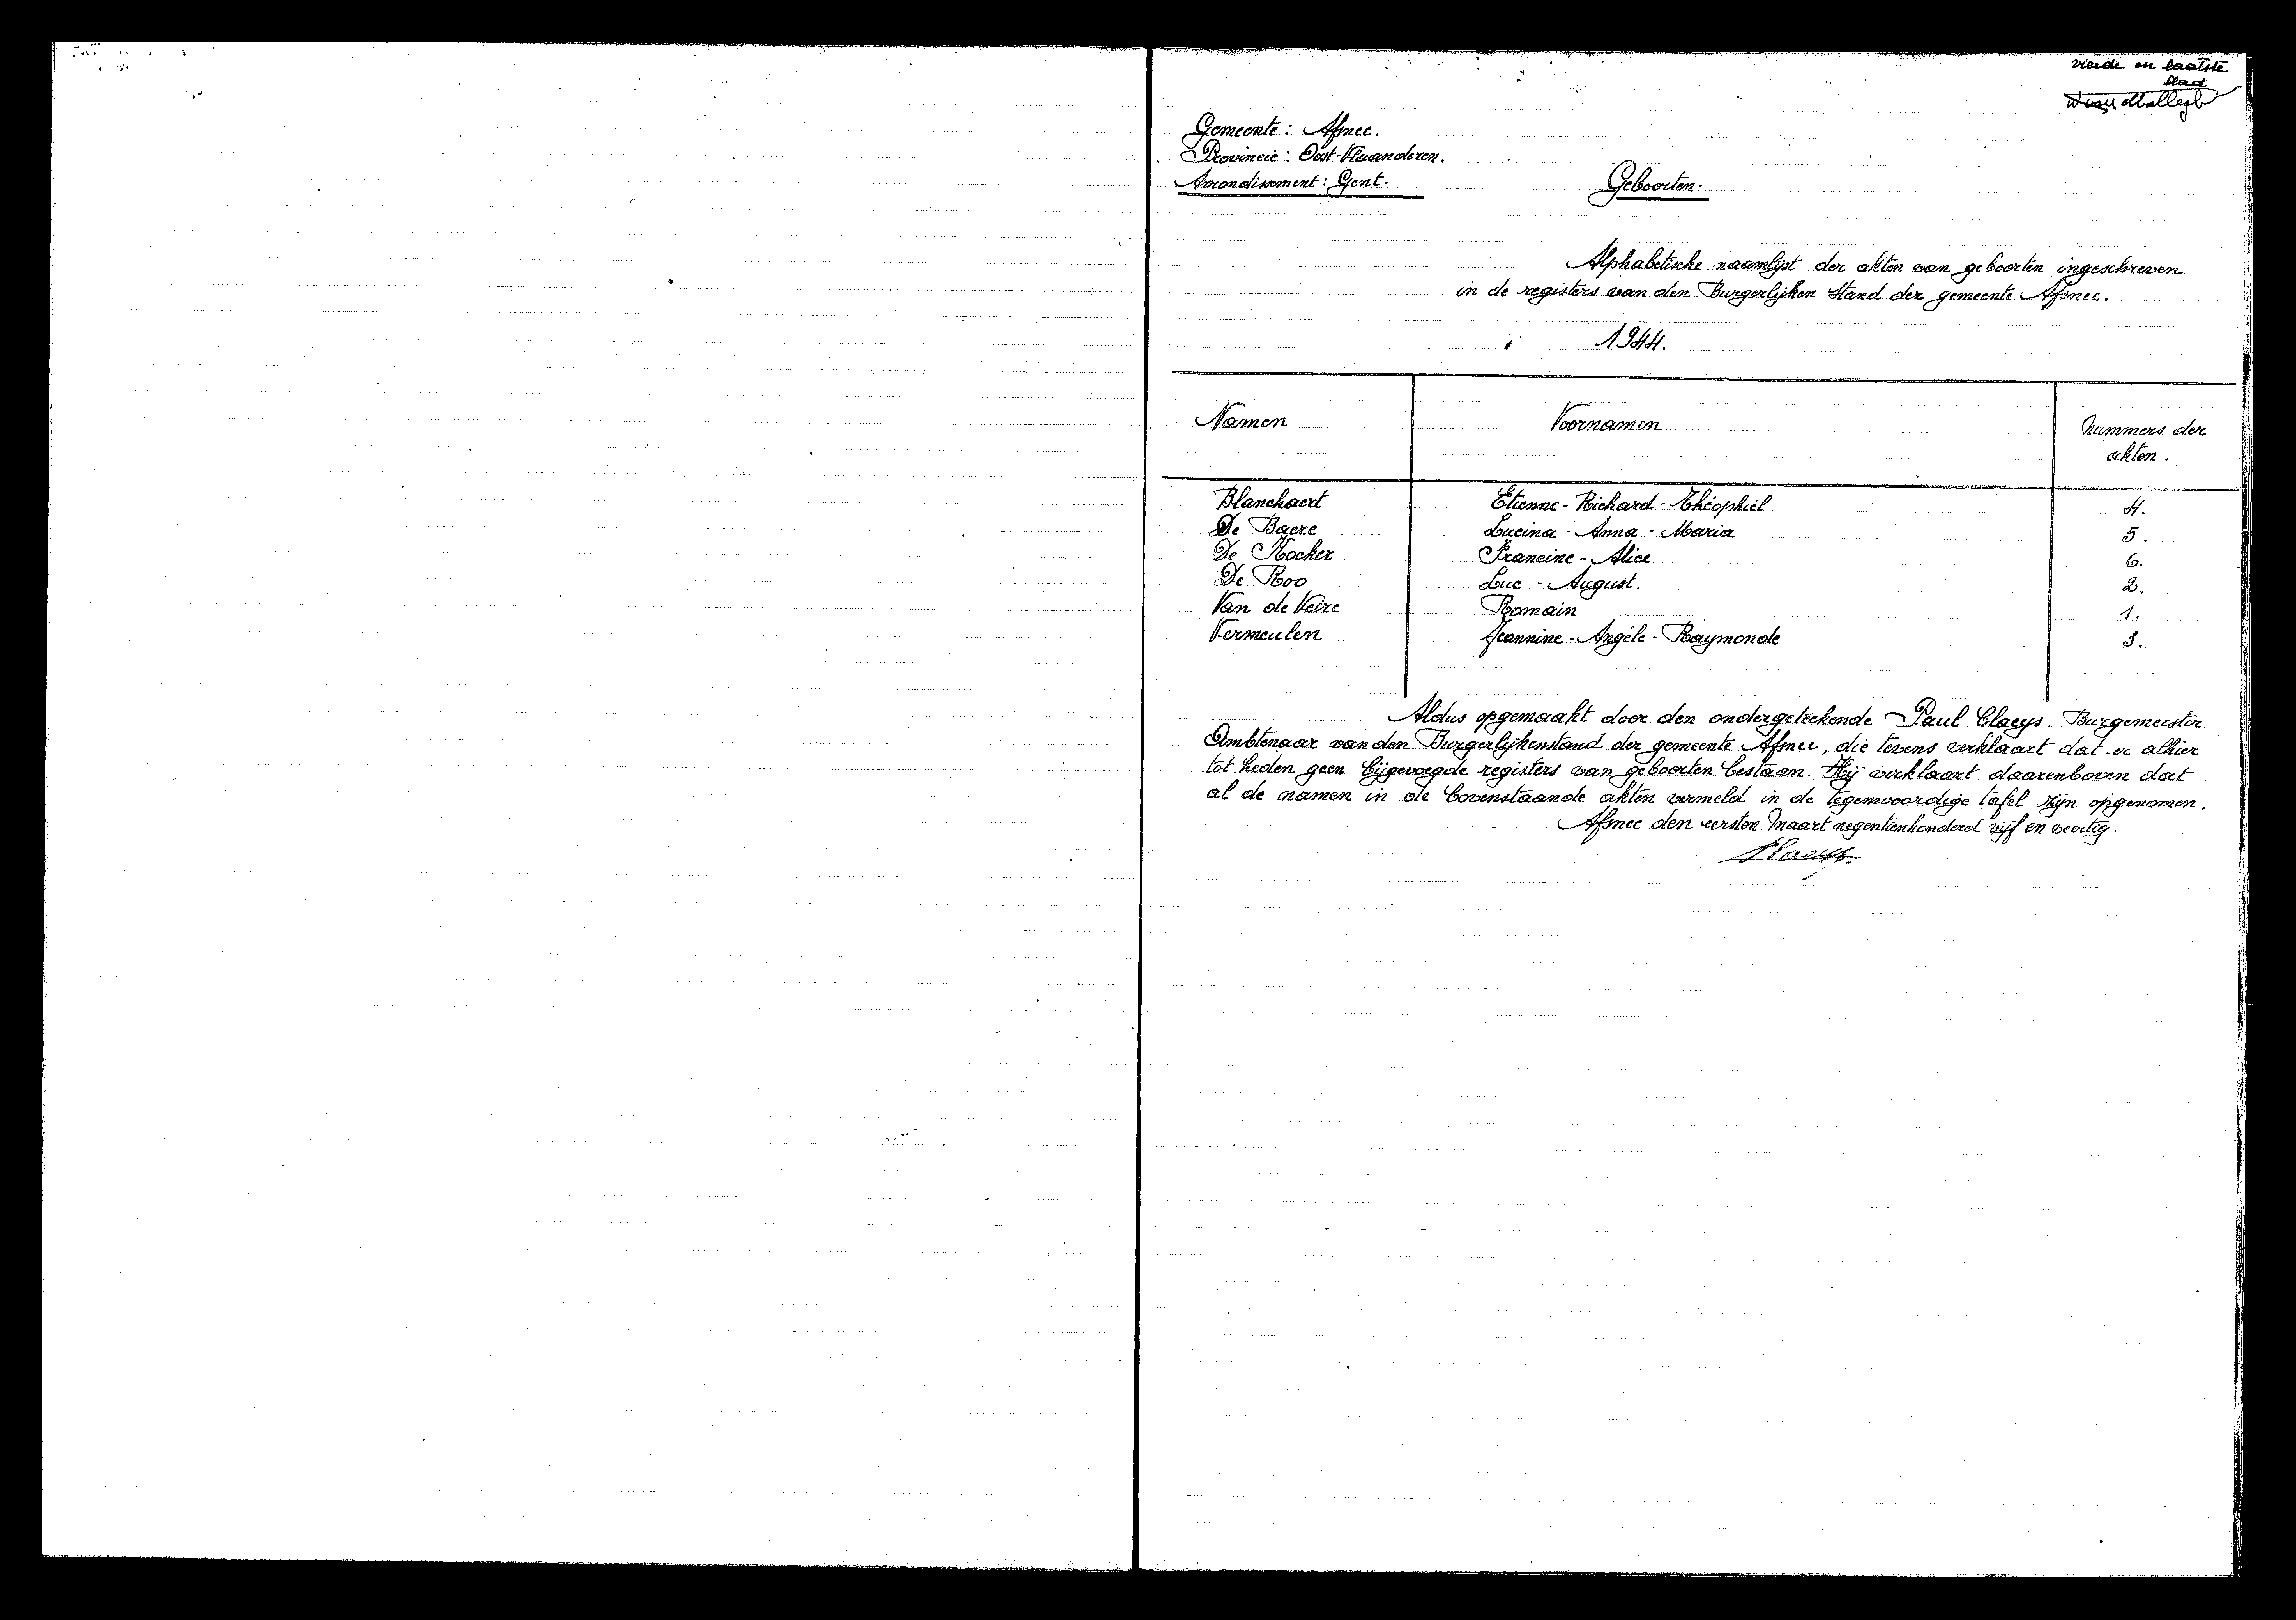 vierde en laatste
blad
Gemeente : Afsnee.
Provincie : Oost-Vlaanderen.
Arrondissement : Gent.
Geboorten.
Alphabetische naamlijst der akten van geboorten ingeschreven
in de registers van den Burgerlijken Stand der gemeente Afsnee.
1944.
Namen Voornamen Nummers der
akten.
Blanchaert Etienne - Richard - Théophiel 4.
De Baere Lucina - Anna - Maria 5.
De Kocker Francine - Alice 6.
De Roo Luc - August. 2.
Van de Veire Romain 1.
Vermeulen Jeannine - Angèle - Raymonde 3.
Aldus opgemaakt door den ondergeteekende Paul Claeys. Burgemeester
Ambtenaar van den Burgerlijkenstand der gemeente Afsnee, die tevens verklaart dat er alhier
tot heden geen bijgevoegde registers van geboorten bestaan. Hij verklaart daarenboven dat
al de namen in de bovenstaande akten vermeld in de tegenwoordige tafel zijn opgenomen.
Afsnee den eersten Maart negentienhonderd vijf en veertig.